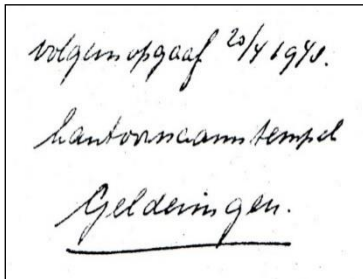 volgens opgaaf 20/4 1948.
kantoornaamstempel
Gelderingen.